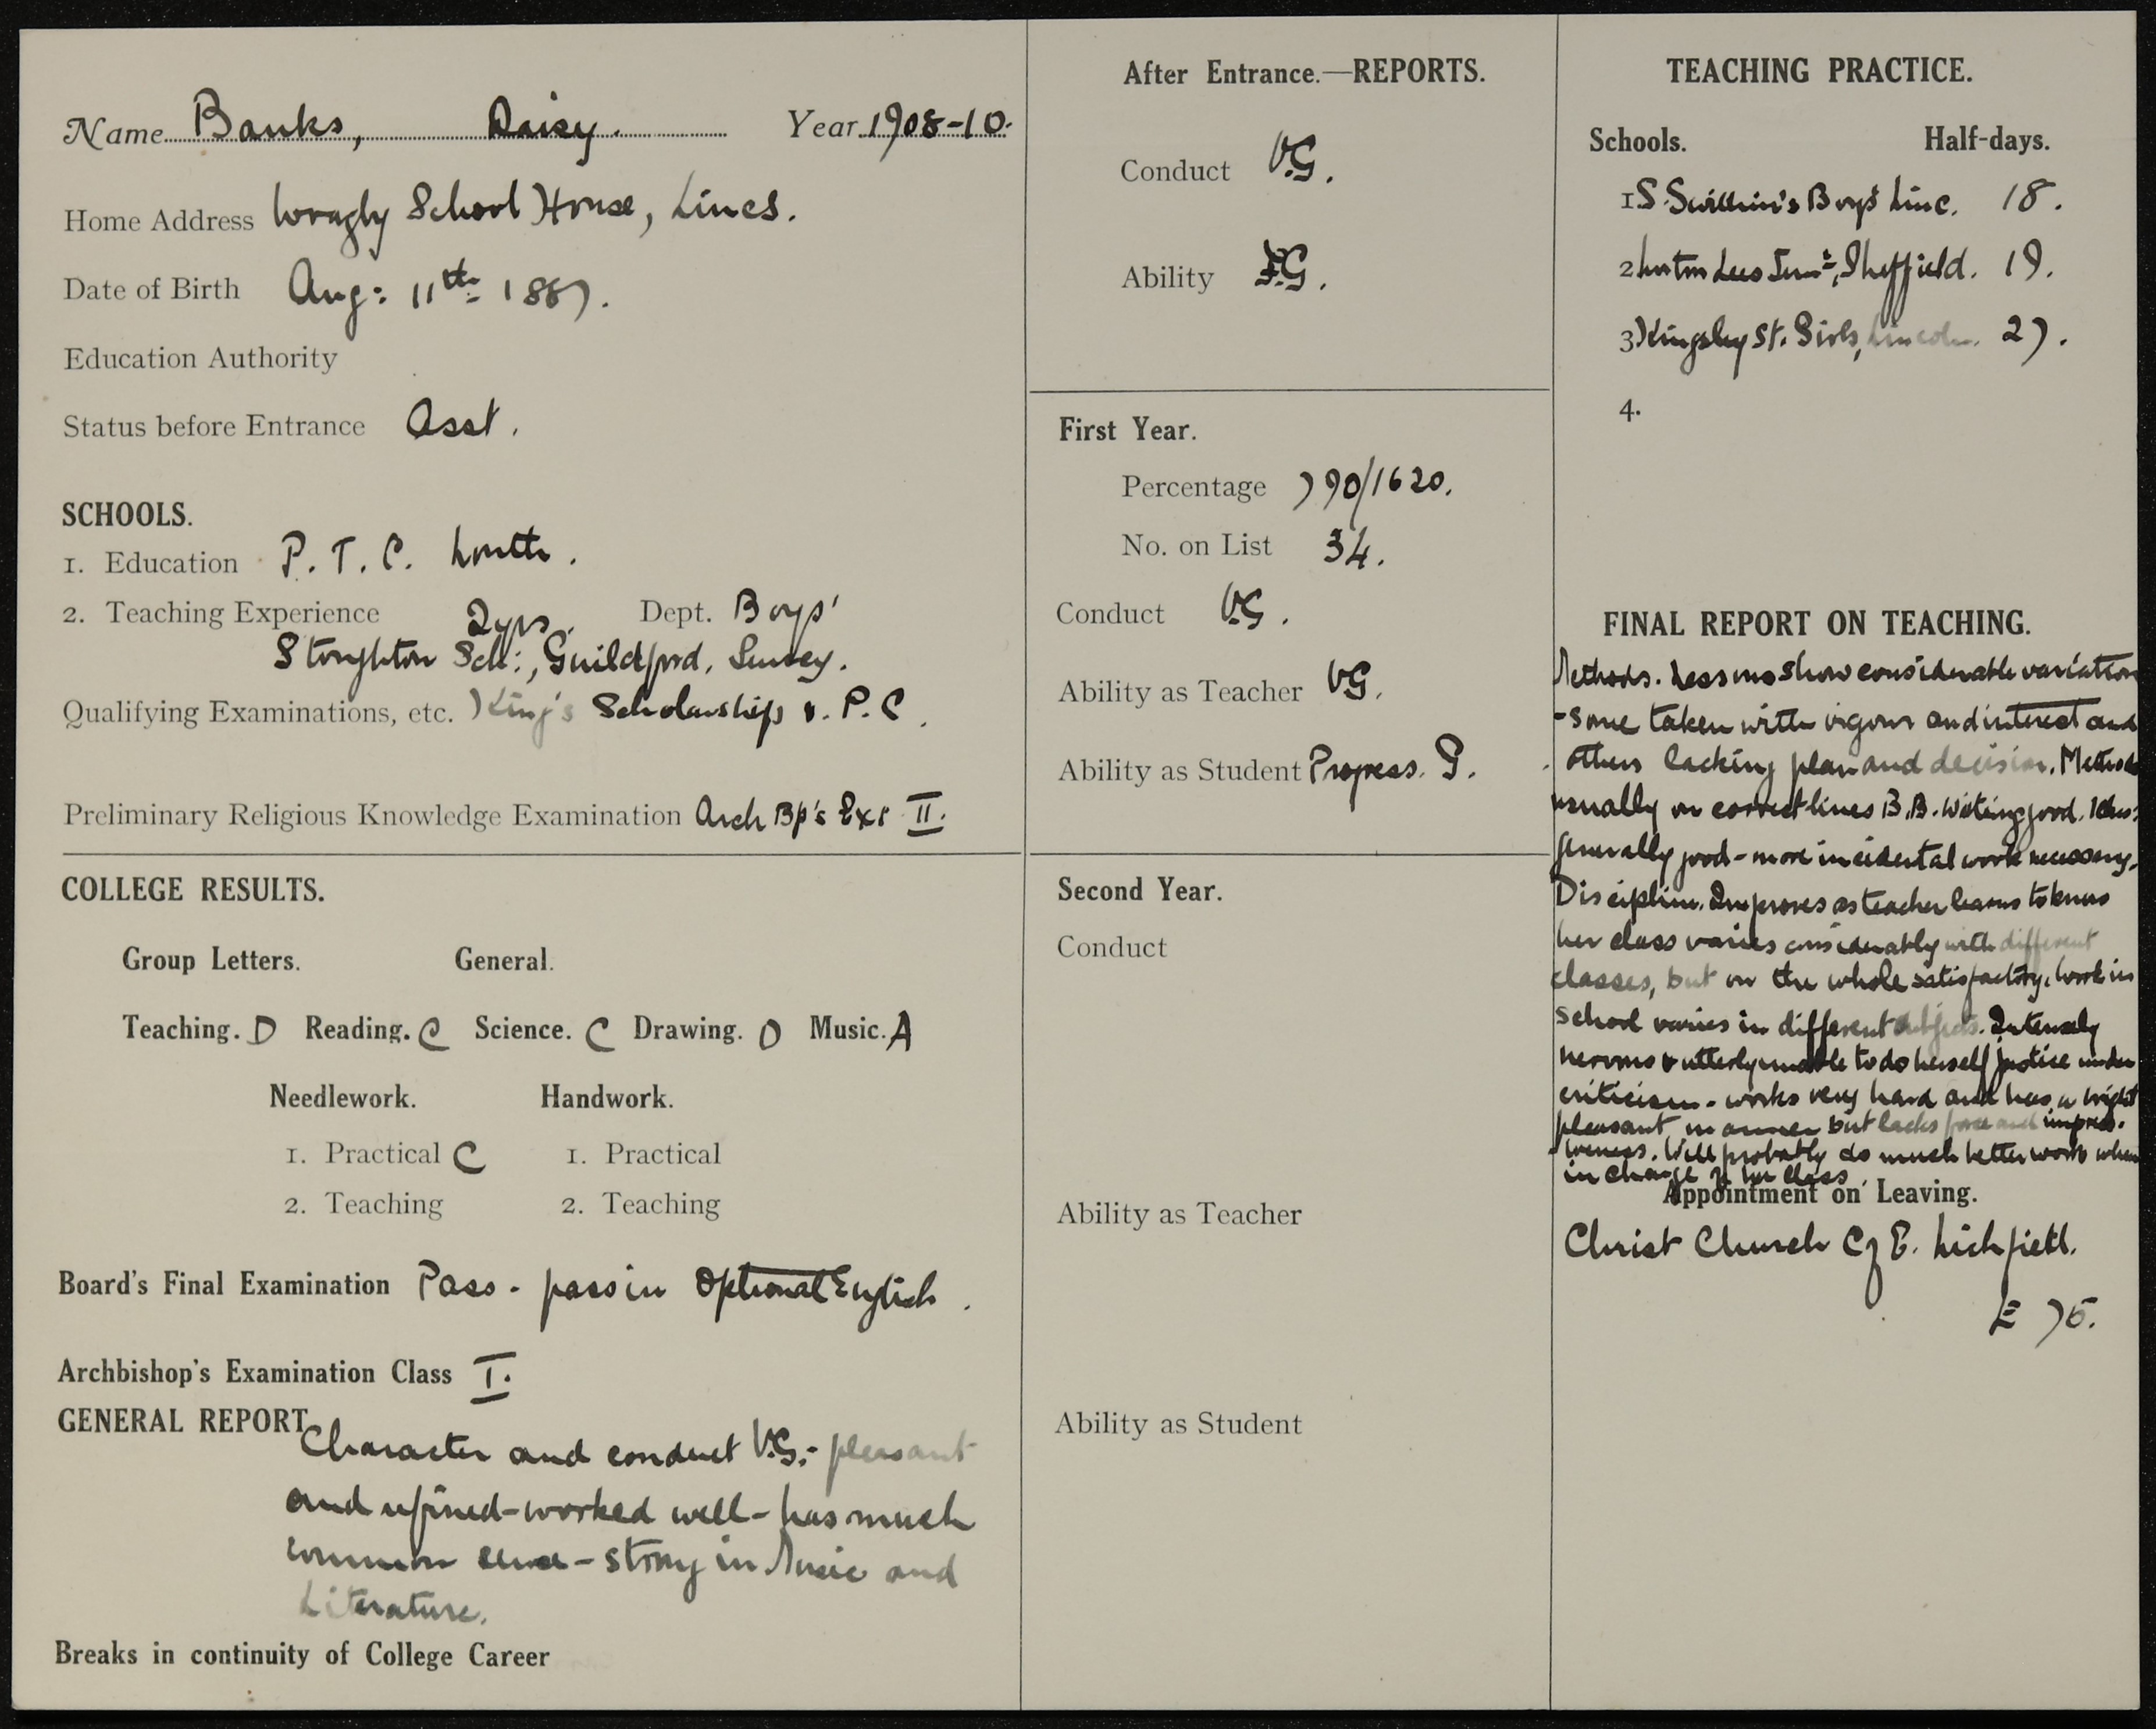 Name Banks, Daisy. Year 1908-10.
Home Address Wragby School House, Lincs.
Date of Birth Aug: 11th 1887.
Education Authority
Status before Entrance Asst.
SCHOOLS.
1. Education P. T. C. Louth.
2. Teaching Experience 2yrs. Dept. Boys'
Stoughton Sch:, Guildford, Surrey.
Qualifying Examinations, etc. King's Scholarship & P.C.
Preliminary Religious Knowledge Examination Arch Bp's Exr II.
COLLEGE RESULTS.
Group Letters. General.
Teaching. D Reading. C Science. C Drawing. D Music. A
Needlework. Handwork.
1. Practical C 1. Practical
2. Teaching 2. Teaching
Board's Final Examination Pass - pass in Optional English.
Archbishop's Examination Class I.
GENERAL REPORT
Character and conduct V.G.- pleasant
and refined-worked well-has much
common sense-strong in Music and
Literature.
Breaks in continuity of College Career
After Entrance.—REPORTS.
Conduct V.G.
Ability F.G.
First Year.
Percentage 790/1620.
No. on List 34.
Conduct V.G.
Ability as Teacher VG.
Ability as Student Progress. G.
Second Year.
Conduct
Ability as Teacher
Ability as Student
TEACHING PRACTICE.
Schools. Half-days.
1 S. Swithin's Boys' Linc. 18.
2 Sheffield. 19.
3 Kingsley St. Girls, Lincoln. 27.
4.
FINAL REPORT ON TEACHING.
Methods. Lessons show considerable variation
-some taken with vigour and interest and
others lacking plan and decision. Methods
usually on correct lines B.B. Writing good.
generally good-more incidental work necessary.
Discipline. Improves as teacher learns to know
her class varies considerably with different
classes, but on the whole satisfactory. Work in
School varies in different subjects. Intensely
nervous & utterly unable to do herself justice under
criticism - works very hard and has a bright
pleasant manner but lacks force and impress-
iveness. Will probably do much better work when
in charge of her class.
Appointment on Leaving.
Christ Church C of E. Lichfield.
£ 75.